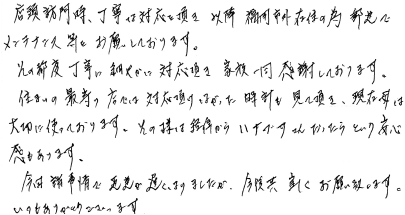 店頭訪問時、丁寧な対応を頂き 以降 福岡市外在住の為 郵送で
メンテナンス等を お願いしております。
その都度 丁寧に 細やかに 対応頂き 家族一同 感謝しております。
住まいの最寄り店では 対応頂けなかった 時計も 見て頂き、現在母は
大切に使っております。その様な経緯から いすずさんだったら という 安心
感もあります。
今回 諸事情で 返送が 遅くなりましたが、今後共 宜しく お願い致します。
いつもありがとうございます